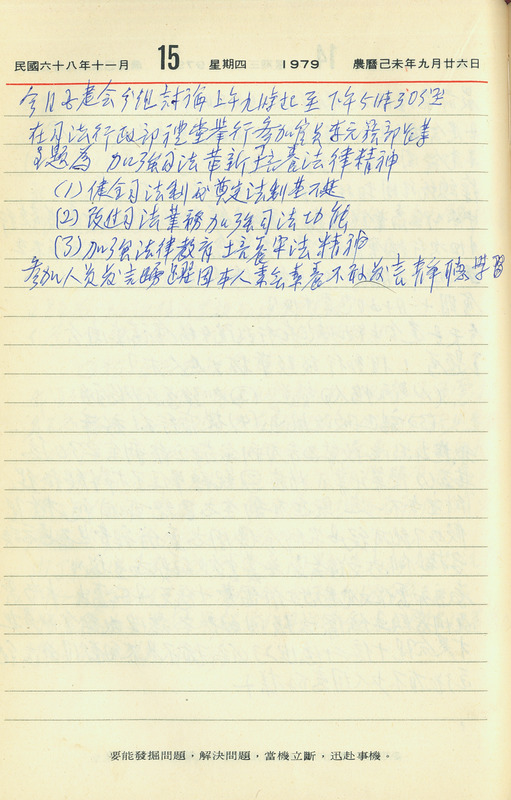 民國六十八年十一月 15 星期四 1979 農曆己未年九月廿六日
今日 建会分组討論上午九時起至下午5時30分
在司法行政部禮堂举行参加官員李元簇部長
主題為 加強司法革新 培養法律精神
(1) 健全司法制度奠定法制基礎
(2) 改進司法業務加強司法功能
(3) 加強法律教育 培養守法精神
參加人員发言踴躍因本人素養不敢发言靜聽學習
要能發掘問題，解決問題，當機立斷，迅赴事機。